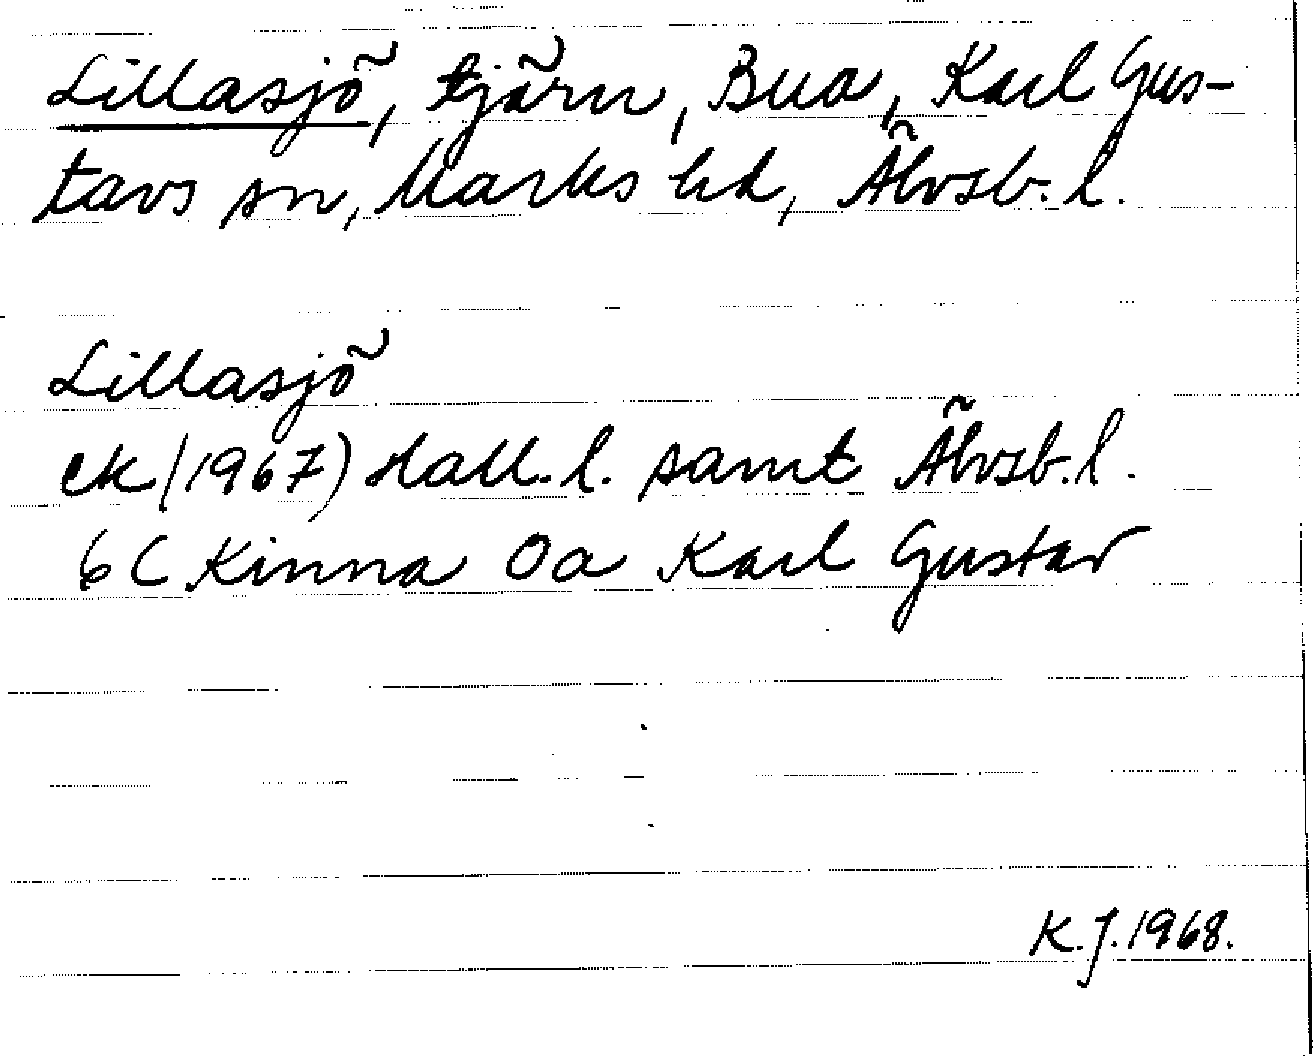 Lillasjö, tjärn, Bua, Karl Gus-
tavs sn, Marks hd, Älvsb. l.
Lillasjö
ek (1967) Hall. l. samt Älvsb. l.
6C Kinna 0a Karl Gustav
K. J. 1968.